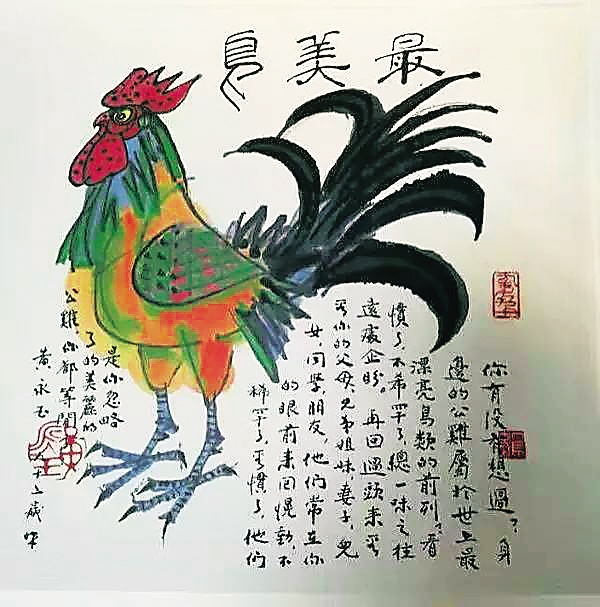 最美
你有没有想過？身
邊的公雞屬於世上最
漂亮鳥類的前列，看
慣了，不希罕了，總一味之往
遠處企盼。再回過頭來看
看你的父母、兄弟姐妹、妻子、兒
女、同學、朋友，他們常在你
的眼前来回慌動，不
稀罕了，看慣了，他們
是你忽略
了的美麗的
公雞，你都等閒
黄永玉